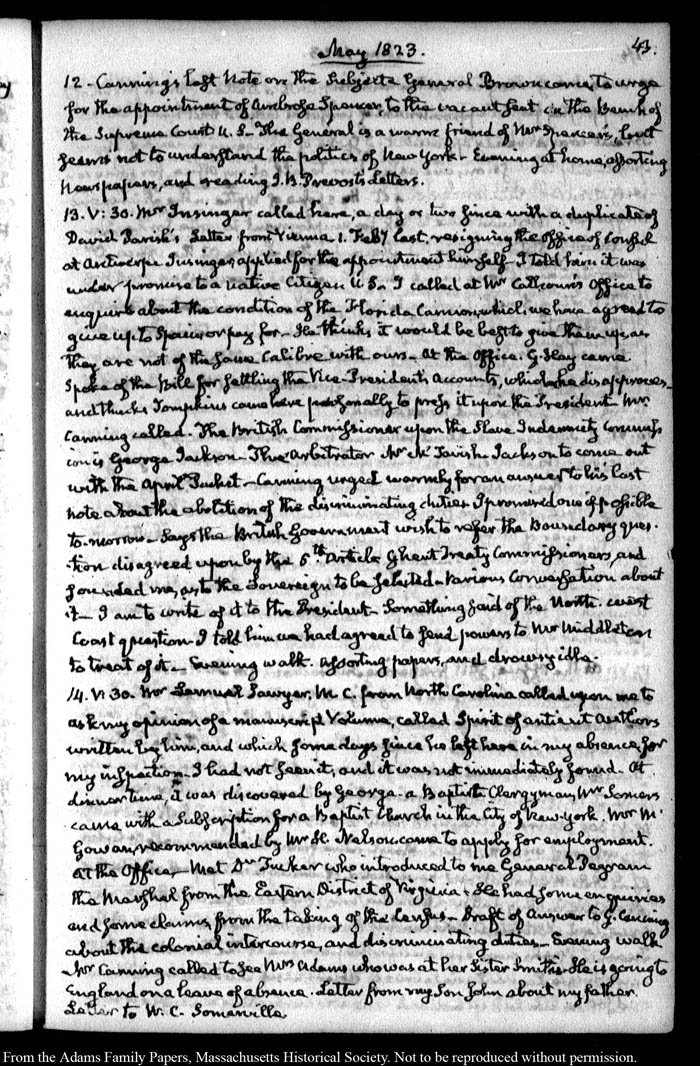 43.
May 1823.
12 - Canning's last Note on the Subject. General Brown came, to urge
for the appointment of Ambrose Spencer, to the vacant seat in the Bench of
the Supreme Court U. S. - The General is a warm friend of Mr Spencer's, but
seems not to understand the politics of New York - Evening at home, assorting
Newspapers, and reading J. B. Prevost's Letters.
13. V: 30. Mr Insinger called here, a day or two since with a duplicate of
David Parish's Letter from Vienna 1. Feby last, resigning the office of Consul
at Antwerp. Insinger applied for the appointment himself - I told him it was
under promise to a native Citizen U S. - I called at Mr Calhoun's Office to
enquire about the condition of the Florida Cannon, which we have agreed to
give up to Spain or pay for - He thinks it would be best to give them up as
they are not of the same Calibre with ours - At the Office. G. Hay came
Spoke of the Bill for settling the Vice-President's Accounts, which he disapproves
and thinks Tompkins came here personally to press it upon the President - Mr
Canning called. The British Commissioner upon the Slave Indemnity Commiss
ion is George Jackson - The Arbitrator Mr McTavish. Jackson to come out
with the April Packet - Canning urged warmly for an answer to his last
note about the abolition of the discriminating duties. I promised one if possible
to-morrow - Says the British Government wish to refer the Boundary ques-
tion disagreed upon by the 5th Article Ghent Treaty Commissioners, and
sounded me, as to the Sovereign to be selected - Various Conversation about
it - I am to write of it to the President - Something said of the North-west
Coast question - I told him we had agreed to send powers to Mr Middleton
to treat of it - Evening walk. Assorting papers, and drowsy idle.
14. V: 30. Mr Samuel Sawyer, M. C. from North Carolina called upon me to
ask my opinion of a manuscript Volume, called Spirit of antient Authors
written by him, and which some days since he left here in my absence, for
my inspection. I had not seen it, and it was not immediately found. At
dinner time, it was discovered by George - a Baptist Clergyman, Mr Somers
came with a Subscription for a Baptist Church in the City of New-York. Mr Mc
Gowan, recommended by Mr H. Nelson came to apply for employment.
At the Office, Met Dr Tucker who introduced to me General Pegram
the Marshal from the Eastern District of Virginia - He had some enquiries
and some claims from the taking of the Census - Draft of Answer to G. Canning
about the colonial intercourse, and discriminating duties - Evening walk
Mr Canning called to see Mrs Adams who was at her Sister Smith's. He is going to
England on a leave of absence. Letter from my Son John about my father.
Letter to W. C. Somerville
From the Adams Family Papers, Massachusetts Historical Society. Not to be reproduced without permission.